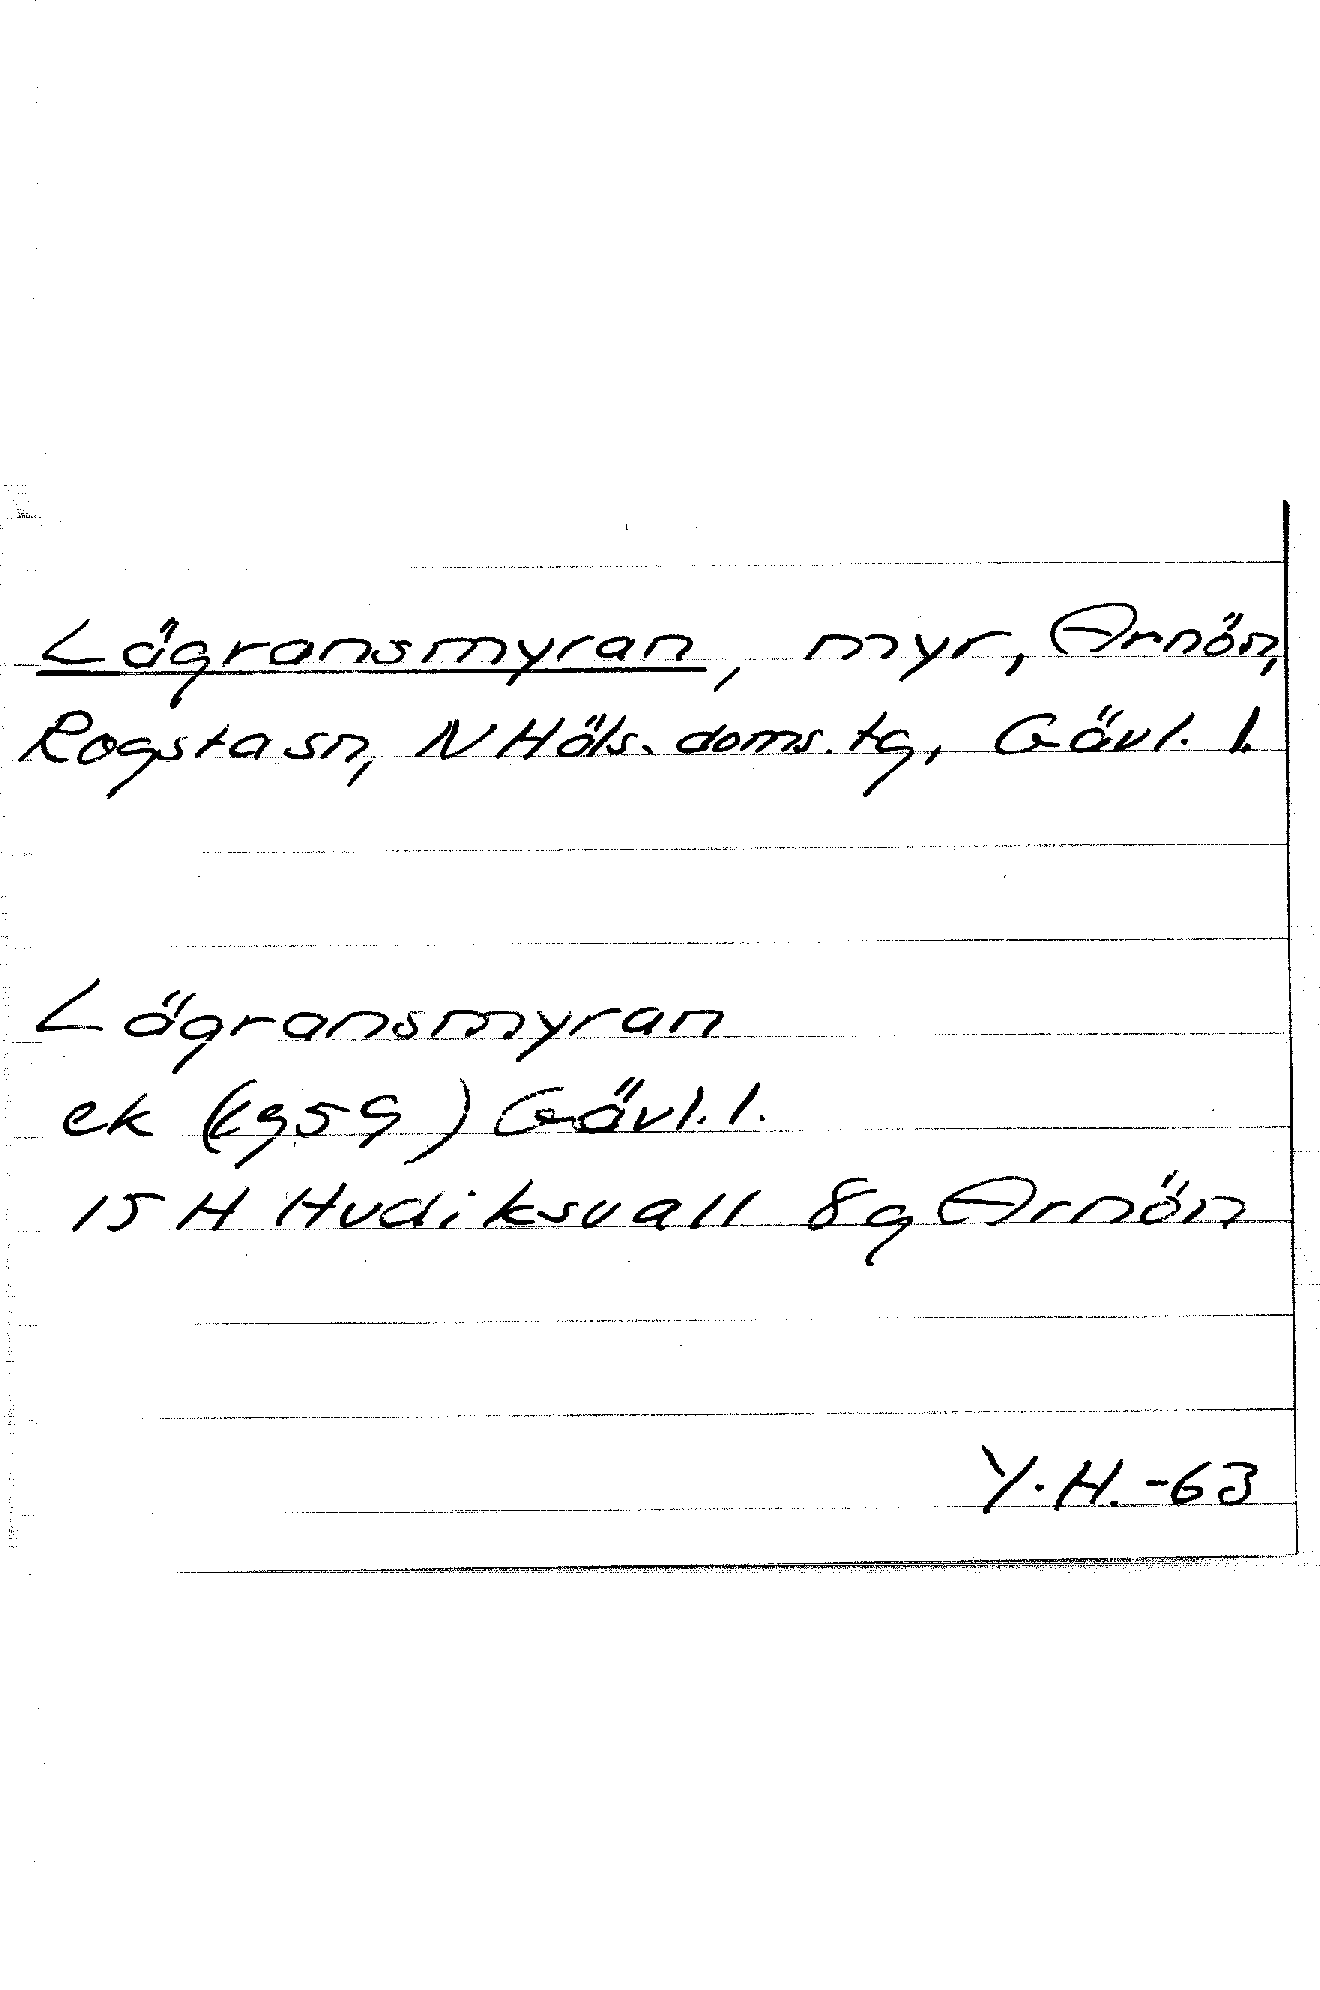 Lägransmyran, myr, Arnön,
Rogsta sn, N Häls. doms. tg, Gävl. l.
Lägransmyran
ek (1959) Gävl. l.
15 H Hudiksvall 8g Arnön
Y.H. -63